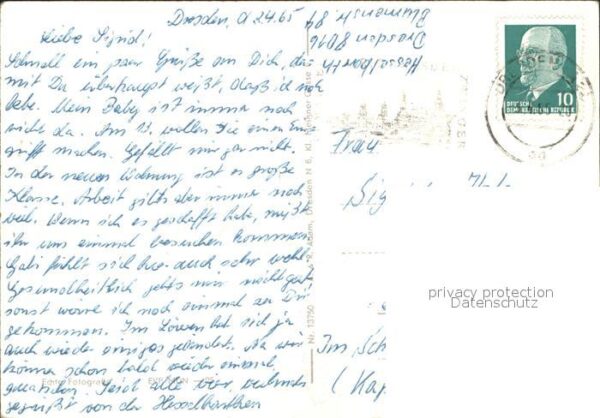 Dresden, d 24.65
Liebe Sigrid!
Schnell ein paar Grüße an Dich, da
mit Du überhaupt weißt, daß ich noch
lebe. Mein Baby ist immer noch
nicht da. Am 13. wollen die einen Ein
griff machen. Gefällt mir gar nicht.
In der neuen Wohnung ist es große
Klasse. Arbeit gibts aber immer noch
viel. Wenn ich es geschafft habe, müßt
ihr uns einmal besuchen kommen.
Gabi fühlt sich hier auch sehr wohl.
Gesundheitlich jetzt mir nicht gut
sonst wäre ich noch einmal zu Dir
gekommen. Im Löwen hat sich ja
auch wieder einiges geändert. Na wir
können schon bald wieder einmal
quatschen. Seid alle vier vielmals
gegrüßt von der Hesselbarthen
Echte Fotografie
Nr. 13750
Adam, Dresden N 6, Kl.
Hesselbarth
Dresden 8016
Blumenstr. 84
DRESDEN
10
DEUTSCHE
DEMOKRATISCHE REPUBLIK
Frau
Sig
Im Sch
(Kap
privacy protection
Datenschutz